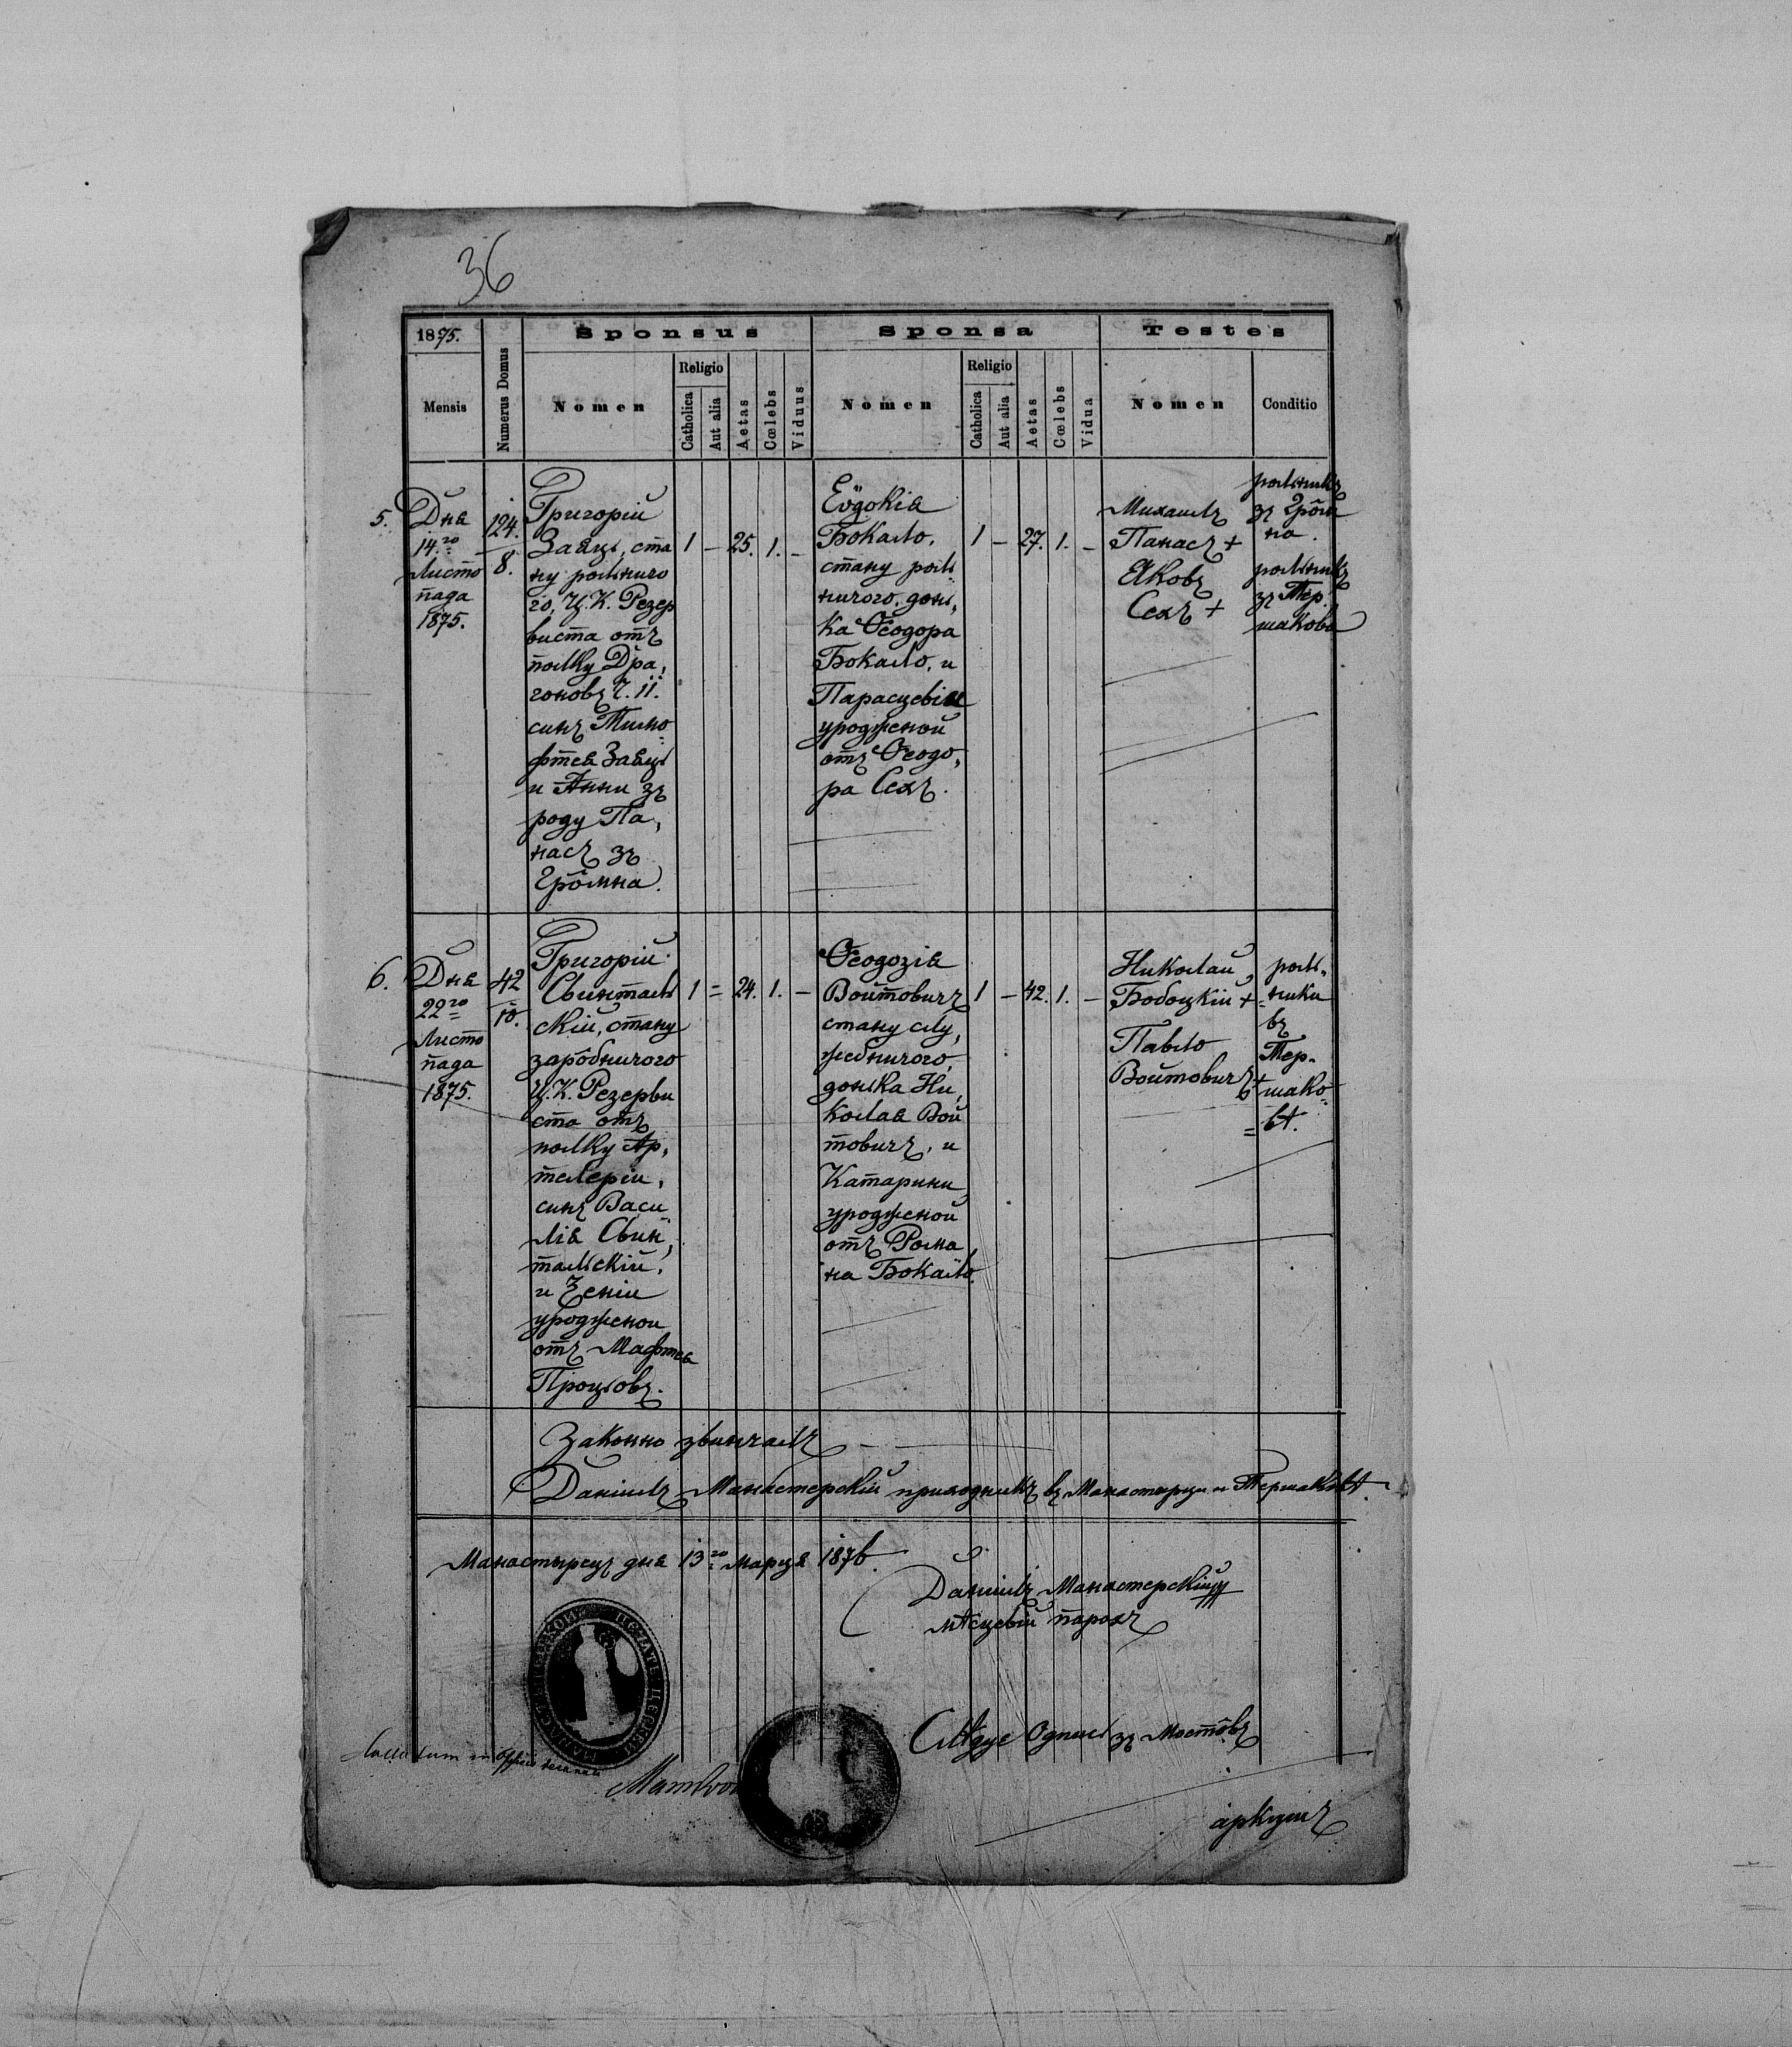 36
1875.
Sponsus
Sponsa
Testes
Mensis
Numerus Domus
Nomen
Religio
Catholica
Aut alia
Aetas
Cœlebs
Viduus
Nomen
Religio
Catholica
Aut alia
Aetas
Cœlebs
Vidua
Nomen
Conditio
5.
Дня
14.го
Листо
пада
1875.
124.
8.
Григорій
Заяць, ста
ну рольничо
го, Ц.К. Резер
виста отъ
полку Дра,
гоновъ Ч. 11.
синъ Тимо
фтея Заяць
и Анни зъ
роду Па,
насъ зъ
Грôмна.
1 – 25. 1. –
Еѵдокія
Бокало,
стану роль
ничого, донь,
ка Ѳеодора
Бокало, и
Парасцевіи
уродженой
отъ Ѳеодо,
ра Сехъ.
1 – 27. 1. –
Михаилъ
Панасъ +
Яковъ
Сехъ +
рольникъ
зъ Грôм
на.
рольникъ
зъ Тер.
шакова
6.
Дня
22го
Листо
пада
1875.
42
10.
Григорій
Свинталь
скій, стану
зарôбничого
Ц.К. Резерви
ста отъ
полку Ар,
телеріи,
синъ Васи
лія Свин,
тальскій,
и Ѯеніи
уродженои
отъ Мафтея
Процьовъ.
1 = 24. 1. –
Ѳеодозія
Войтовичъ
стану слу,
жебничого,
донька Ни,
колая Вой
товичъ, и
Катарини
уродженой
отъ Рома,
на Бокало.
1 – 42. 1. –
Николай
Бобоцкій +
Павло
Войтовичъ +
роль-
ники
въ
Тер-
шако-
вѣ.
Законно звинчалъ
Даніилъ Манастерскій приходникъ въ Манастырци и Тершаковѣ.
Манастырець дня 13го Марця 1876.
Даніилъ Манастерскій
мѣсцевій парохъ
Слѣдує Одпись зъ Мостôвъ
аркушъ